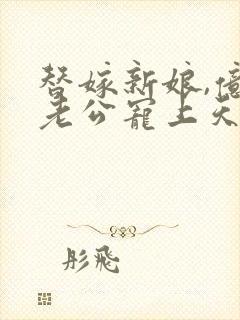 替嫁新娘,億
老公寵上天
彤飛